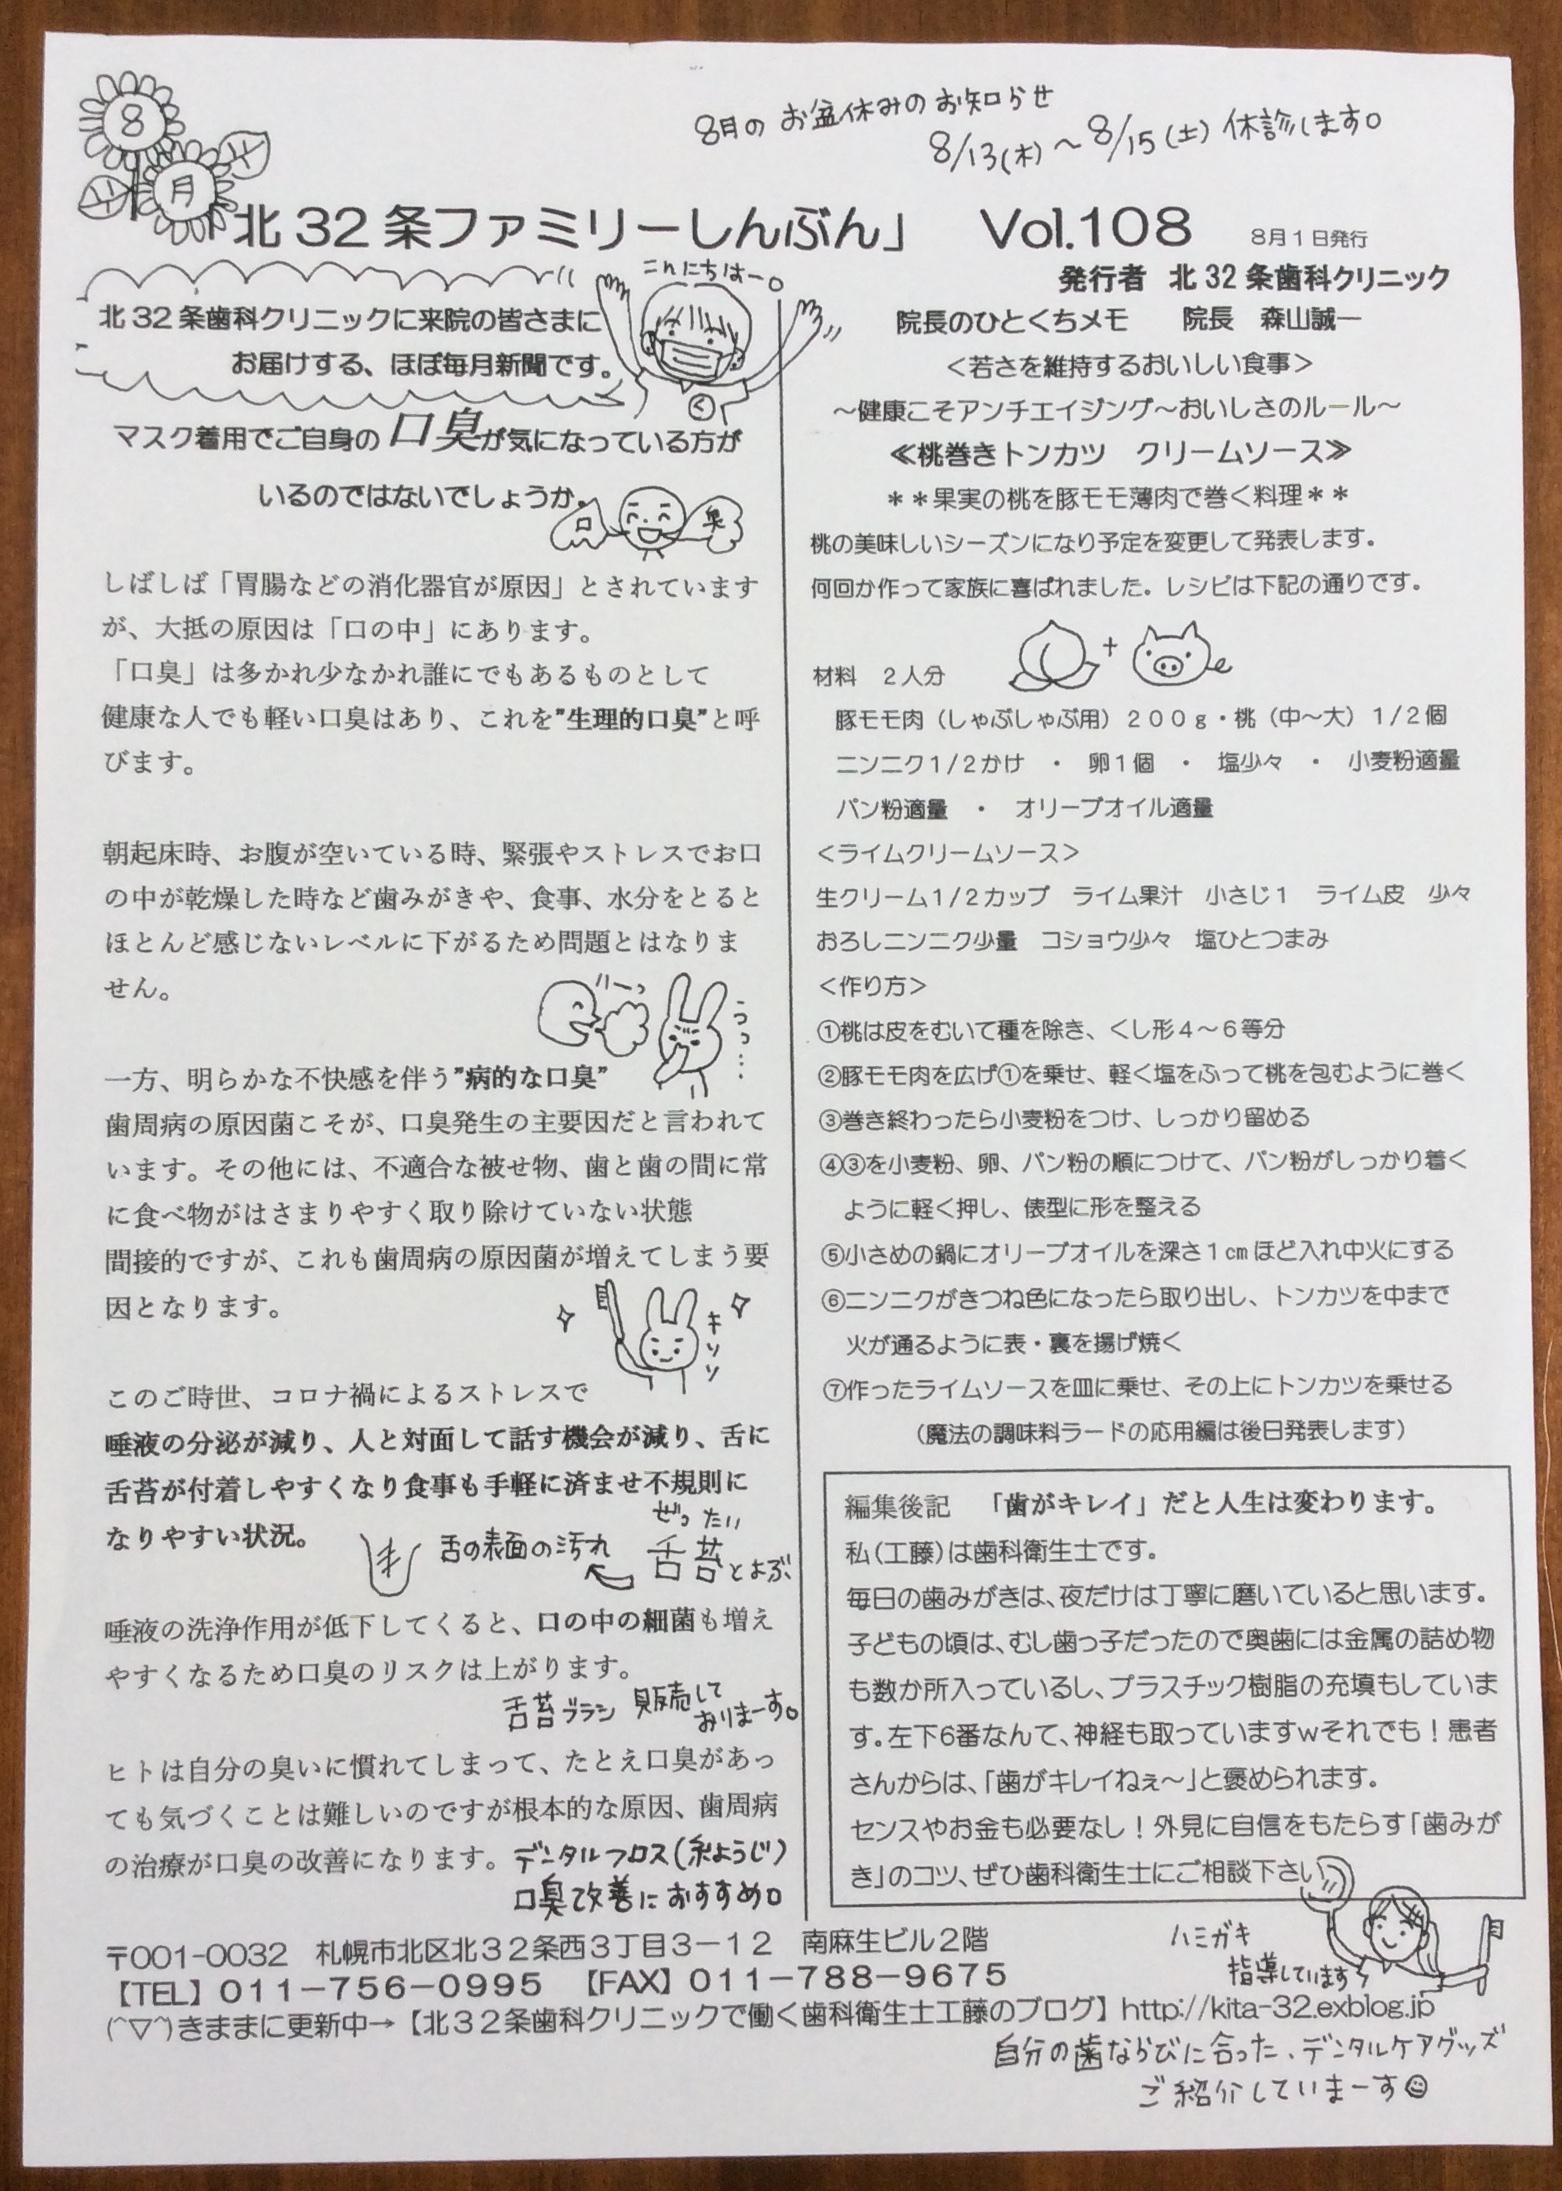 8月
8月のお盆休みのお知らせ
8/13(木)～8/15(土)休診します。
北32条ファミリーしんぶん」　Vol.108　8月1日発行
こんにちはー。
北32条歯科クリニックに来院の皆さまに
お届けする、ほぼ毎月新聞です。
く
マスク着用でご自身の口臭が気になっている方が
いるのではないでしょうか。
口 臭
しばしば「胃腸などの消化器官が原因」とされています
が、大抵の原因は「口の中」にあります。
「口臭」は多かれ少なかれ誰にでもあるものとして
健康な人でも軽い口臭はあり、これを"生理的口臭"と呼
びます。
朝起床時、お腹が空いている時、緊張やストレスでお口
の中が乾燥した時など歯みがきや、食事、水分をとると
ほとんど感じないレベルに下がるため問題とはなりま
せん。
ハーっ
うっ…
一方、明らかな不快感を伴う"病的な口臭"
歯周病の原因菌こそが、口臭発生の主要因だと言われて
います。その他には、不適合な被せ物、歯と歯の間に常
に食べ物がはさまりやすく取り除けていない状態
間接的ですが、これも歯周病の原因菌が増えてしまう要
因となります。
このご時世、コロナ禍によるストレスで
唾液の分泌が減り、人と対面して話す機会が減り、舌に
舌苔が付着しやすくなり食事も手軽に済ませ不規則に
なりやすい状況。
舌の表面の汚れ
ぜっ たい
舌苔とよぶ、
唾液の洗浄作用が低下してくると、口の中の細菌も増え
やすくなるため口臭のリスクは上がります。
舌苔ブラシ 販売して
おりまーす。
ヒトは自分の臭いに慣れてしまって、たとえ口臭があっ
ても気づくことは難しいのですが根本的な原因、歯周病
の治療が口臭の改善になります。
デンタルフロス(糸ようじ)
口臭改善におすすめ。
発行者　北32条歯科クリニック
院長のひとくちメモ　　院長　森山誠一
＜若さを維持するおいしい食事＞
～健康こそアンチエイジング～おいしさのルール～
≪桃巻きトンカツ　クリームソース≫
＊＊果実の桃を豚モモ薄肉で巻く料理＊＊
桃の美味しいシーズンになり予定を変更して発表します。
何回か作って家族に喜ばれました。レシピは下記の通りです。
+
材料　2人分
豚モモ肉（しゃぶしゃぶ用）200g・桃（中～大）1/2個
ニンニク1/2かけ　・　卵1個　・　塩少々　・　小麦粉適量
パン粉適量　・　オリーブオイル適量
＜ライムクリームソース＞
生クリーム1/2カップ　ライム果汁　小さじ1　ライム皮　少々
おろしニンニク少量　コショウ少々　塩ひとつまみ
＜作り方＞
①桃は皮をむいて種を除き、くし形4～6等分
②豚モモ肉を広げ①を乗せ、軽く塩をふって桃を包むように巻く
③巻き終わったら小麦粉をつけ、しっかり留める
④③を小麦粉、卵、パン粉の順につけて、パン粉がしっかり着く
ように軽く押し、俵型に形を整える
⑤小さめの鍋にオリーブオイルを深さ1cmほど入れ中火にする
⑥ニンニクがきつね色になったら取り出し、トンカツを中まで
火が通るように表・裏を揚げ焼く
⑦作ったライムソースを皿に乗せ、その上にトンカツを乗せる
（魔法の調味料ラードの応用編は後日発表します）
編集後記　「歯がキレイ」だと人生は変わります。
私（工藤）は歯科衛生士です。
毎日の歯みがきは、夜だけは丁寧に磨いていると思います。
子どもの頃は、むし歯っ子だったので奥歯には金属の詰め物
も数か所入っているし、プラスチック樹脂の充填もしていま
す。左下6番なんて、神経も取っていますwそれでも！患者
さんからは、「歯がキレイねぇ～」と褒められます。
センスやお金も必要なし！外見に自信をもたらす「歯みが
き」のコツ、ぜひ歯科衛生士にご相談下さい
ハミガキ
指導しています
〒001-0032　札幌市北区北32条西3丁目3－12　南麻生ビル2階
【TEL】011－756－0995　【FAX】011－788－9675
(^▽^)きままに更新中→【北32条歯科クリニックで働く歯科衛生士工藤のブログ】http://kita-32.exblog.jp
自分の歯ならびに合った、デンタルケアグッズ
ご紹介していまーす☺